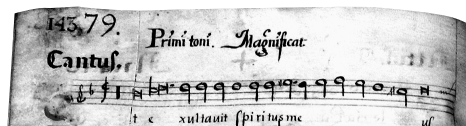 143,79.
Primi toni. Magnificat.
Cantus.
t e xultauit spiritus me us